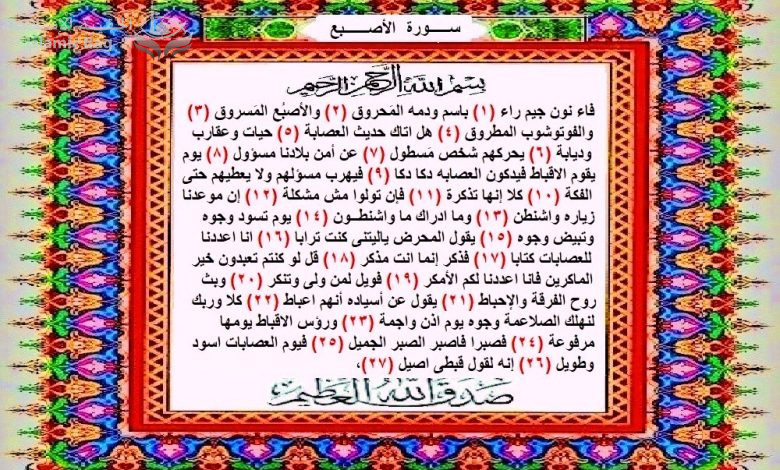 سورة الأصبع
بسم الله الرحمن الرحيم
فاء نون جيم راء (١) باسم ودمه المَحروق (٢) والأصبُع المَسروق (٣)
والفوتوشوب المطروق (٤) هل اتاك حديث العصابة (٥) حيات وعقارب
وديابة (٦) يحركهم شخص مَسطول (٧) عن أمن بلادنا مسؤول (٨) يوم
يقوم الاقباط فيدكون العصابه دكا دكا (٩) فيهرب مسؤلهم ولا يعطيهم حتى
الفكة (١٠) كلا إنها تذكرة (١١) فإن تولوا مش مشكلة (١٢) إن موعدنا
زياره واشنطن (١٣) وما ادراك ما واشنطـون (١٤) يوم تسود وجوه
وتبيض وجوه (١٥) يقول المحرض ياليتنى كنت ترابا (١٦) انا اعددنا
للعصابات كتابا (١٧) فذكر إنما انت مذكر (١٨) قل لو كنتم تعبدون خير
الماكرين فانا اعددنا لكم الأمكر (١٩) فويل لمن ولى وتنكر (٢٠) وبث
روح الفرقة والإحباط (٢١) يقول عن أسياده أنهم اعباط (٢٢) كلا وربك
لنهلك الصلاعمة وجوه يوم اذن واجمة (٢٣) ورؤس الاقباط يومها
مرفوعة (٢٤) فصبرا فاصبر الصبر الجميل (٢٥) فيوم العصابات اسود
وطويل (٢٦) إنه لقول قبطى اصيل (٢٧)،
صدق الله العظيم